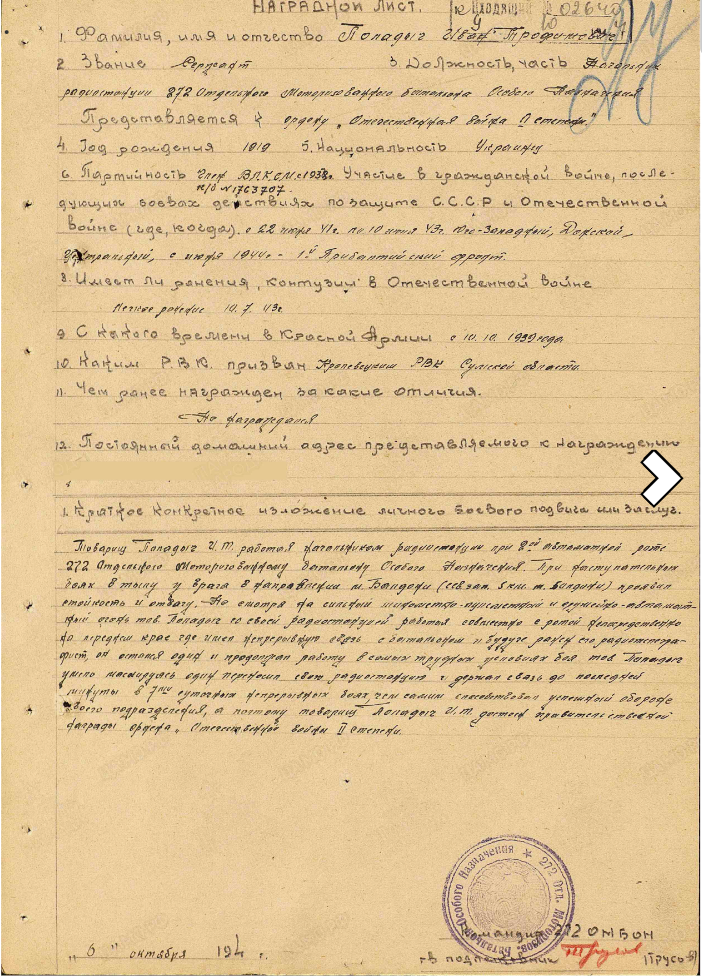 НАГРАДНОЙ ЛИСТ.
к ВХОДЯЩИЙ № 02640
1. Фамилия, имя и отчество Попадыч Иван Трофимович
2. Звание Сержант 3. Должность, часть Начальник
радиостанции 272 Отдельного Моторизованного батальона Особого Назначения
Представляется к ордену „Отечественная война II степени“
4. Год рождения 1919 5. Национальность Украинец
6. Партийность Член ВЛКСМ с 1938г. Участие в гражданской войне, после-
к/б №1763707.
дующих боевых действиях по защите С.С.С.Р и Отечественной
войне (где, когда). с 22 июня 41г. по 10 июля 43г. Юго-Западный, Донской,
Центральный, с июля 1944г. - 1й Прибалтийский фронт.
8. Имеет ли ранения, контузии в Отечественной войне
Легкое ранение 10.7.43г.
9. С какого времени в Красной Армии с 10.10.1939 года
10. Каким Р.В.К. призван Кролевецким РВК Сумской области.
11. Чем ранее награжден за какие отличия.
Не награждался
12. Постоянный домашний адрес представляемого к награждению
1. Краткое конкретное изложение личного боевого подвига или заслуг.
Товарищ Попадыч И.Т. работая начальником радиостанции при 2ой автоматной роте
272 Отдельного Моторизованному батальону Особого Назначения. При наступательных
боях в тылу у врага в направлении м. Вандони (сев. зап. 5 км. м. Вандони) проявил
стойкость и отвагу. Не смотря на сильный минометно-пулеметный и оружейно-автомат-
ный огонь тов. Попадыч со своей радиостанцией работая совместно с ротой непосредственно
на переднем крае где имел непрерывную связь с батальоном и будучи ранен его радиотелегра-
фист, он остался один и продолжал работу в самых трудных условиях боя тов. Попадыч
умело маскируясь один перенося свою радиостанцию и держал связь до последней
минуты в 7ми суточных непрерывных боях, чем самим способствовал успешной обороне
своего подразделения, а поэтому товарищ Попадыч И.Т. достоин правительственной
награды ордена „Отечественной войны II степени.
272 Отд. Моторизов. Батальон Особого Назначения
Командир 272 ОМБОН
гв подполковник (Трусов)
„6“ октября 194 г.